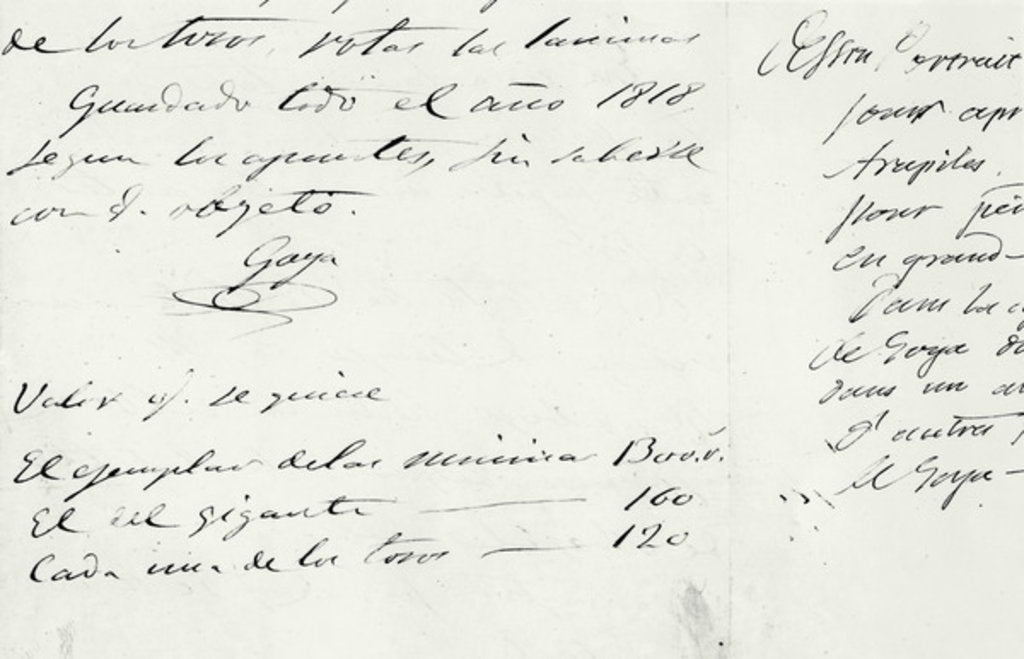 de los toros, rotas las laminas
Guardado todo el año 1818
segun los apuntes, sin saberse
con q. objeto.
Goya
Valor q. se quiere
El ejemplar de las
El del gigante — 160
Cada una de los toros — 120
Portrait
pour
pour
en grand—
Dans la
de Goya
dans un
d'autres
de Goya—